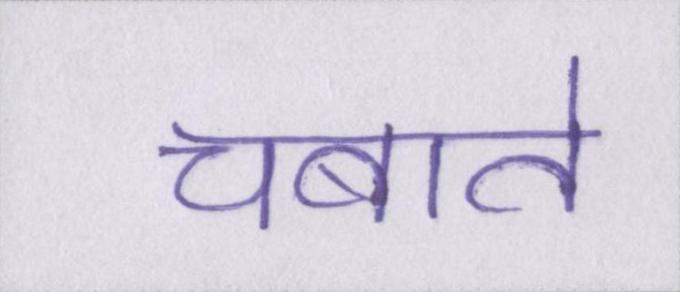 चबाते